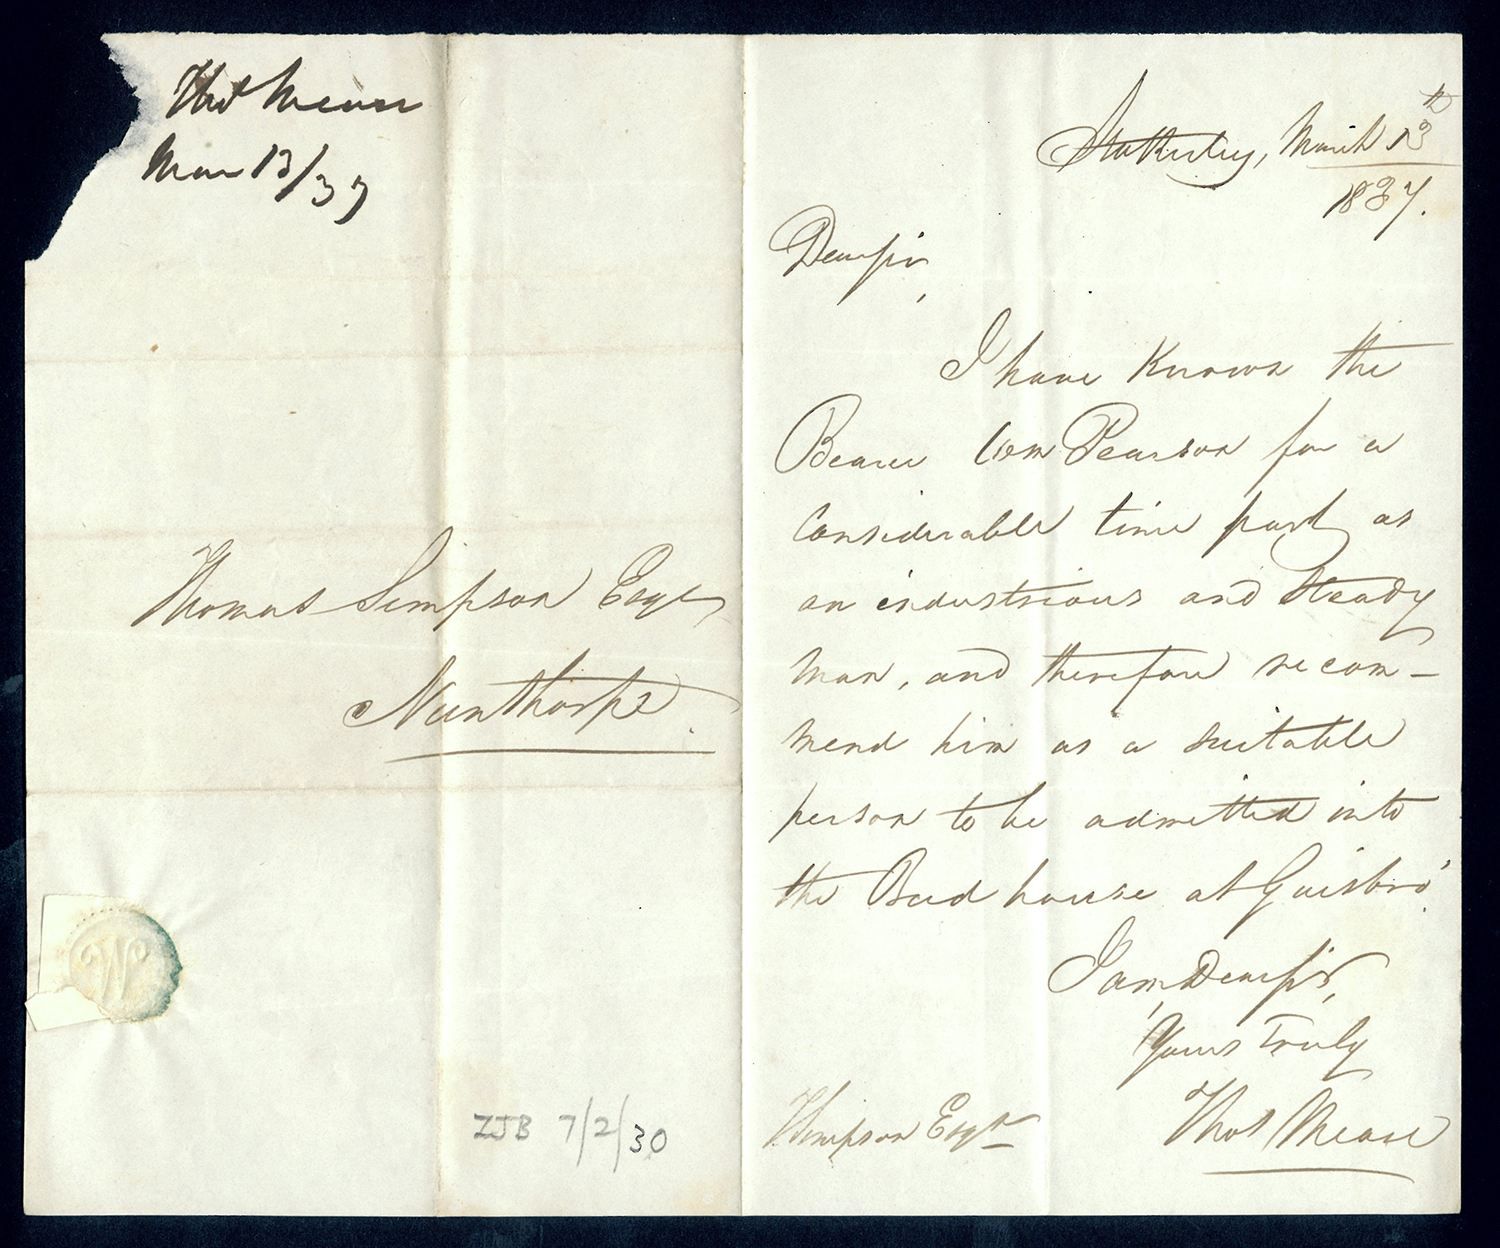 Thos Mease
Mar 13/37
Thomas Simpson Esqr
Nunthorpe
ZJB 7/2/30
Stokesley, March 13th
1837.
Dear Sir,
I have Known the
Bearer Wm Pearson for a
Considerable time past as
an industrious and Steady
Man, and therefore recom-
mend him as a suitable
person to be admitted into
the Bead house at Guisbro'
I am Dear Sir,
Yours Truly
Thos Mease
T Simpson Esqr
W